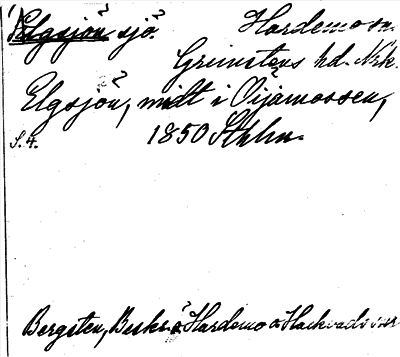 Elgsjön sjö. Hardemo sn.
Grimstens hd. Nrk.
Elgsjön, midt i Oijamossen,
S. 4. 1850 Sthlm.
Bergsten, Beskr. ö. Hardemo o Hackvads snr